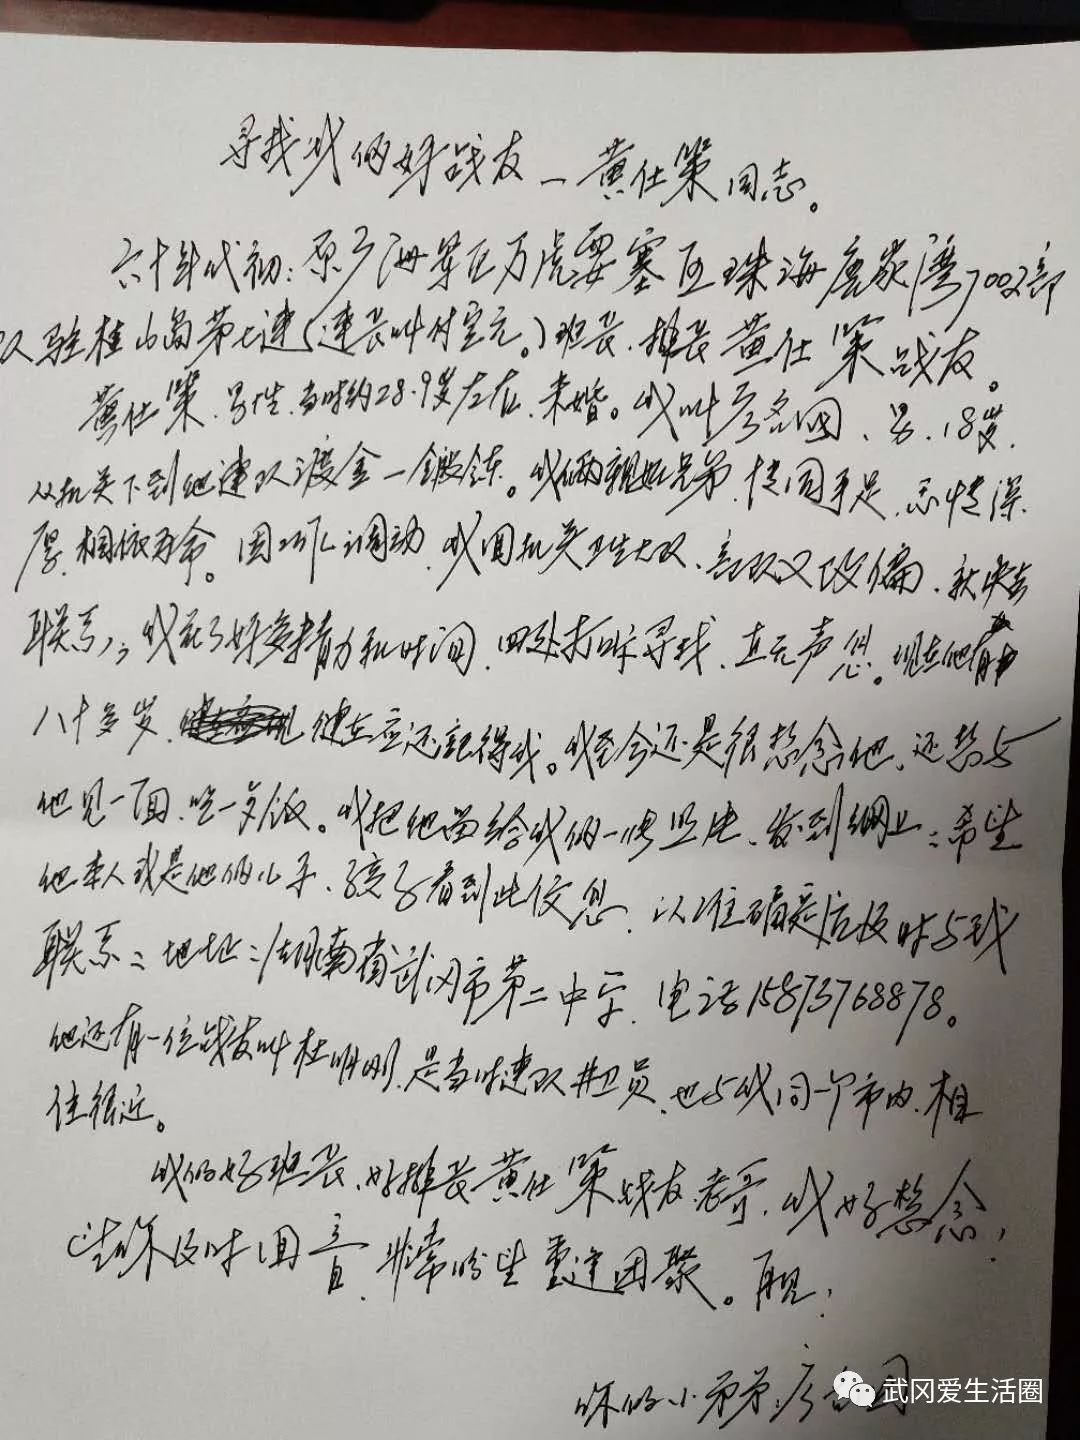 寻找我们好战友一黄仕策同志。
六十年代初:原广州军区万虎要塞区珠海唐家湾7002部
队驻桂山岛第七连(连长叫付宝元。)班长、排长黄仕策战友。
黄仕策、男性、当时约28.9岁左右、未婚。我叫名国、男、18岁、
从机关下到他连队渡金一锻炼。我俩亲如兄弟、情同手足、恩情深
厚、相依为命。因工作调动、我回机关卫生大队、部队又改编、就失去
联系,我花了好多精力和时间、四处打听寻找、直无声息。现在他有
八十多岁、健在应还記得我。我至今还是很想念他、还想与
他见一面、吃一歺饭。我把他留给我们一张照片、发到網上:希望
他本人或是他的儿子、孩子看到此信息、以准确定后及时与我
联系:地址:湖南省武冈市第二中学、电话15873768878。
他还有一位战友叫杜明刚、是当时连队卫员、也与我同一个市内、相
住很近。
我们好班长、好排长黄仕策战友老哥、我好想念,
请你及时回音、非常盼望重逢团聚。再见,
你的小弟弟:国
武冈爱生活圈